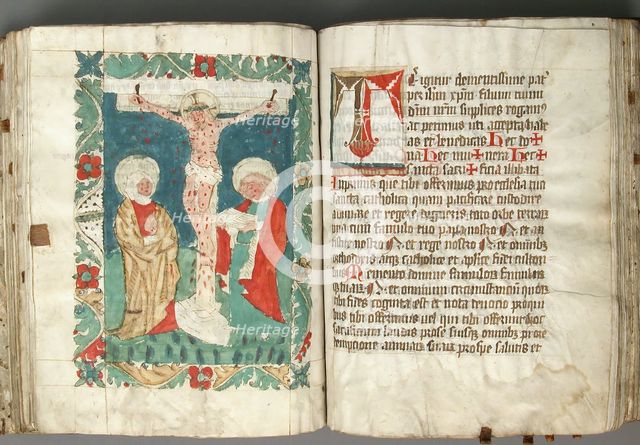 e igitur clementissime pat
per ihm xpm filium tuum
dnm nrm suplices rogam
ac petimus uti accepta habe
as et benedicas Hec do
na Hec mu nera Hec
sancta sacri ficia illibata
Inprimis que tibi offerimus pro ecclesia tua
sancta catholica quam pacificare custodire
adunare et regere digneris toto orbe terrar
una cum famulo tuo papa nostro N et an
tistite nostro N et rege nostro N et omnibus
orthodoxis atq catholice et aplice fidei cultorib
Memento domine famulorum famularu
N et omnium circumstantium quorum
tibi fides cognita est et nota devotio pro qui
bus tibi offerimus uel qui tibi offerunt hoc
sacrificium laudis pro se suisq omnibus pro re
demptione animarum suarum pro spe salutis et
Heritage
Heritage
Heritage
Heritage